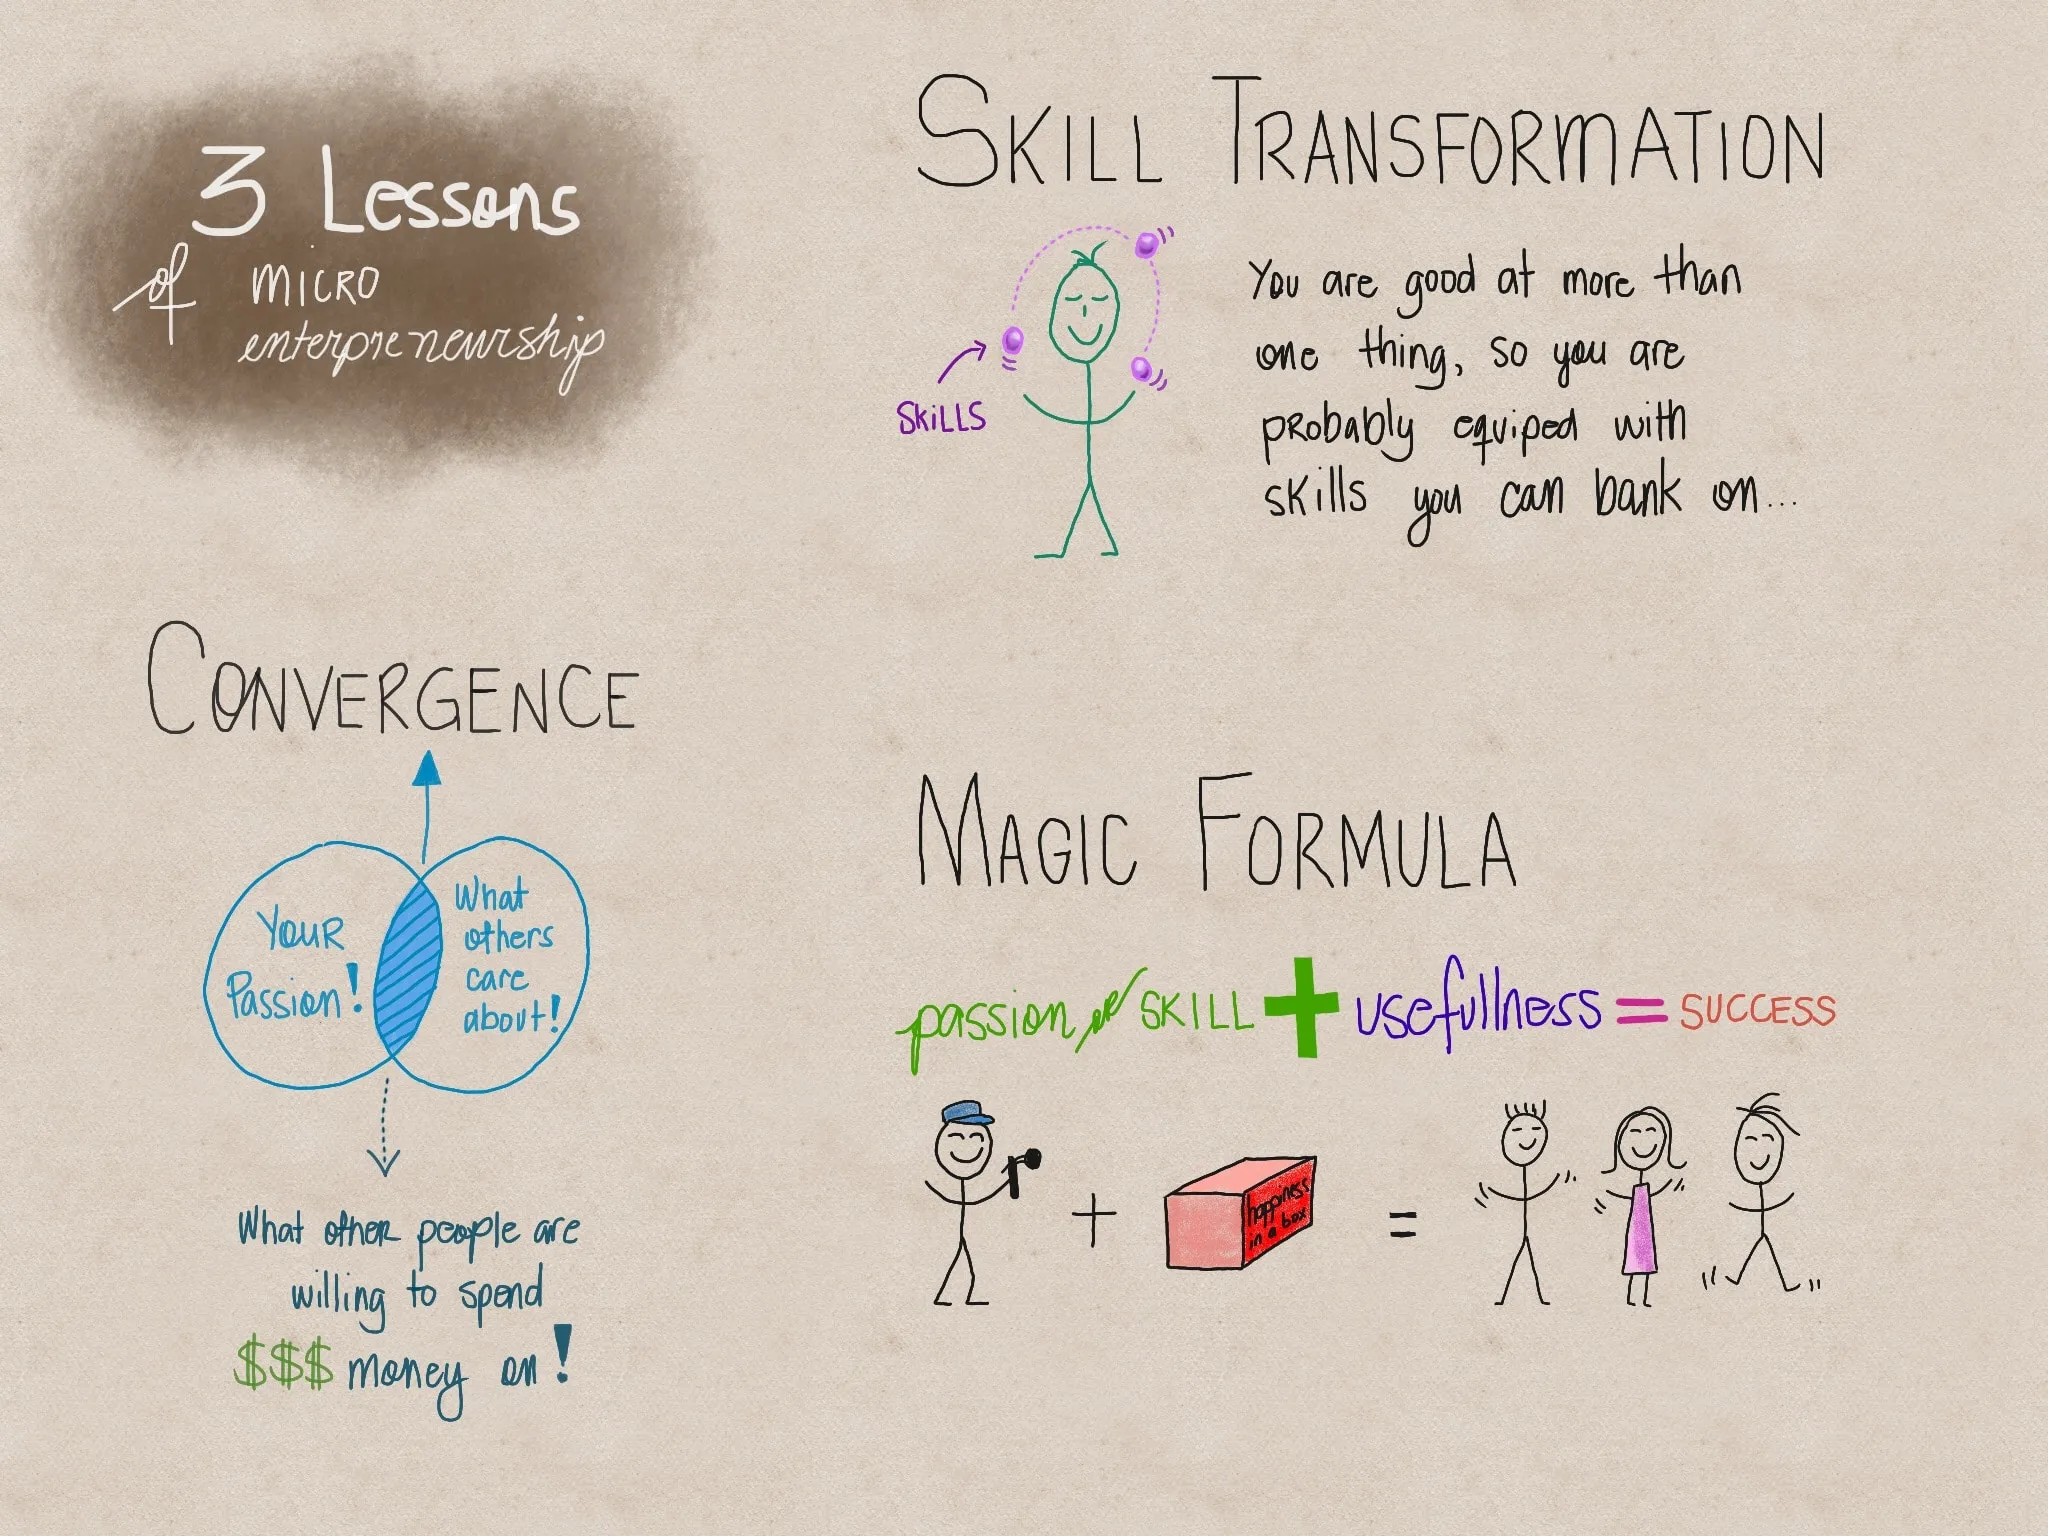 3 Lessons
of MICRO
enterpreneurship
SKILL TRANSFORMATION
SKILLS
You are good at more than
one thing, so you are
probably equiped with
skills you can bank on...
CONVERGENCE
YOUR
Passion!
What
others
care
about!
What other people are
willing to spend
$$$ money on!
MAGIC FORMULA
passion or SKILL + usefullness = SUCCESS
happiness
in a box
+ =